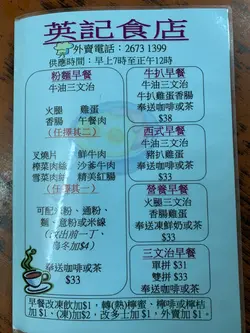 英記食店
外賣電話：2673 1399
供應時間：早上7時至正午12時
粉麵早餐
牛油三文治
火腿 雞蛋
香腸 午餐肉
(任擇其二)
叉燒片 鮮牛肉
榨菜肉絲 沙爹牛肉
雪菜肉絲 精美紅腸
(任擇其一)
可配米粉、通粉、
麵、意粉或米線
(改出前一丁、
烏冬加$4)
奉送咖啡或茶
$33
牛扒早餐
牛油三文治
牛扒雞蛋香腸
奉送咖啡或茶
$38
西式早餐
牛油三文治
豬扒雞蛋
奉送咖啡或茶
$33
營養早餐
火腿雞蛋三文治
奉送凍鮮奶或茶
$33
三文治早餐
單拼 $31
雙拼 $33
奉送咖啡或茶
早餐改凍飲加$1，轉(熱)檸蜜、檸啡或檸桔
加$1、(凍)加$2，改多士加$1，外賣加$1。